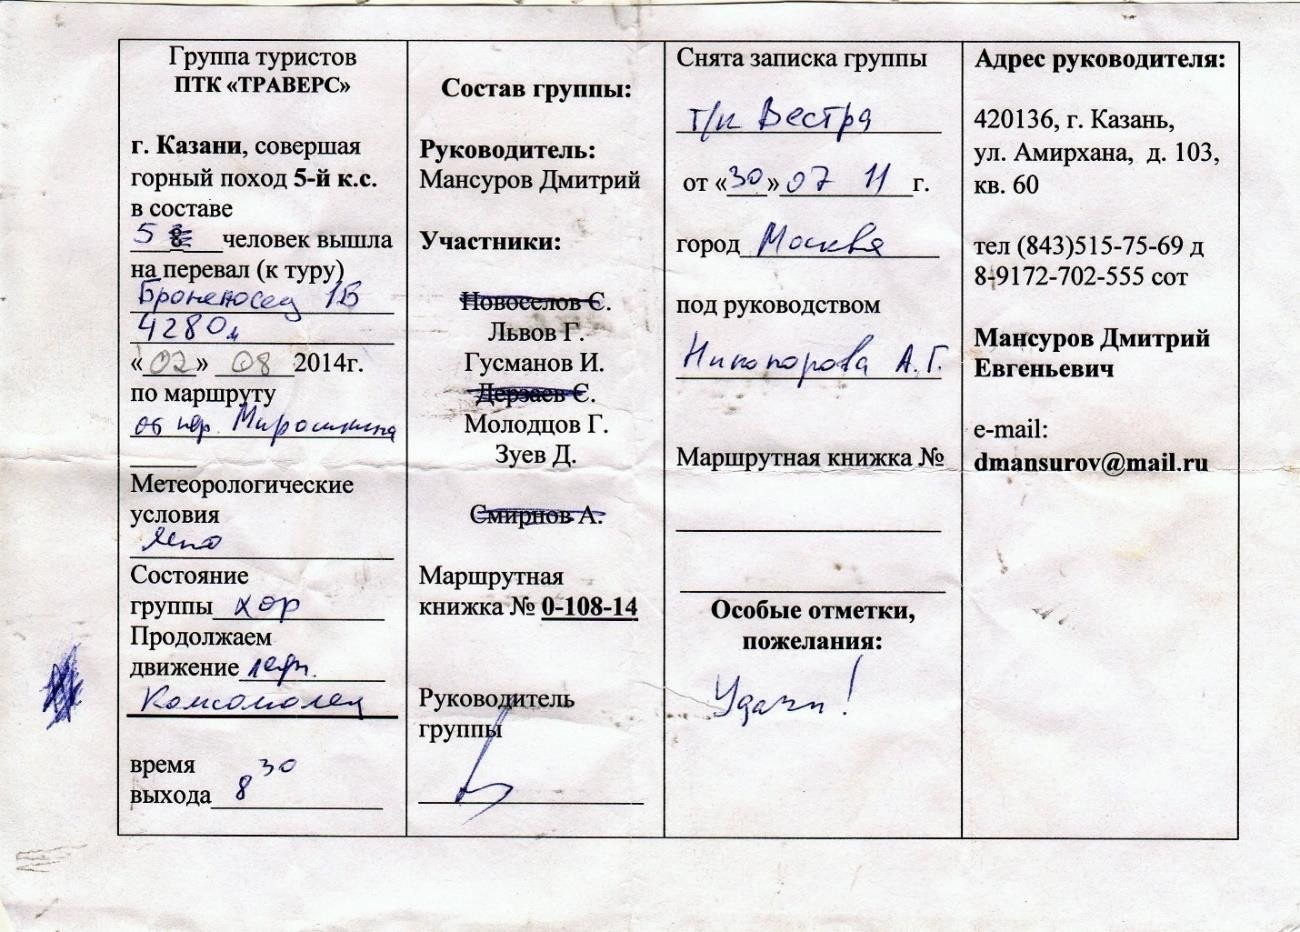 Группа туристов
ПТК «ТРАВЕРС»
г. Казани, совершая
горный поход 5-й к.с.
в составе
5 человек вышла
на перевал (к туру)
Броненосец 1В
4280м
«02» 08 2014г.
по маршруту
от пер. Мирошкина
Метеорологические
условия
Ясно
Состояние
группы хор
Продолжаем
движение
Комсомолец
время
выхода 8 30
Состав группы:
Руководитель:
Мансуров Дмитрий
Участники:
Новоселов С.
Львов Г.
Гусманов И.
Дерзаев С.
Молодцов Г.
Зуев Д.
Смирнов А.
Маршрутная
книжка № 0-108-14
Руководитель
группы
Снята записка группы
т/к Вестра
от «30» 07 11 г.
город Москва
под руководством
Никопорова А.Г.
Маршрутная книжка №
Особые отметки,
пожелания:
Удачи!
Адрес руководителя:
420136, г. Казань,
ул. Амирхана, д. 103,
кв. 60
тел (843)515-75-69 д
8-9172-702-555 сот
Мансуров Дмитрий
Евгеньевич
e-mail:
dmansurov@mail.ru